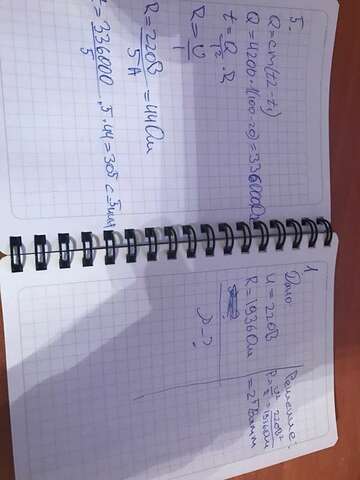 5.
Q=cm(t2-t1)
Q=4200·1(100-20)=336000Дж
t=Q · R
R=U/I
R=220В/5А=44Ом
t=336000/5 · 5 · 44=305 с 5мин
1
Дано:
U=220В
R=1936Ом
P-?
Решение: